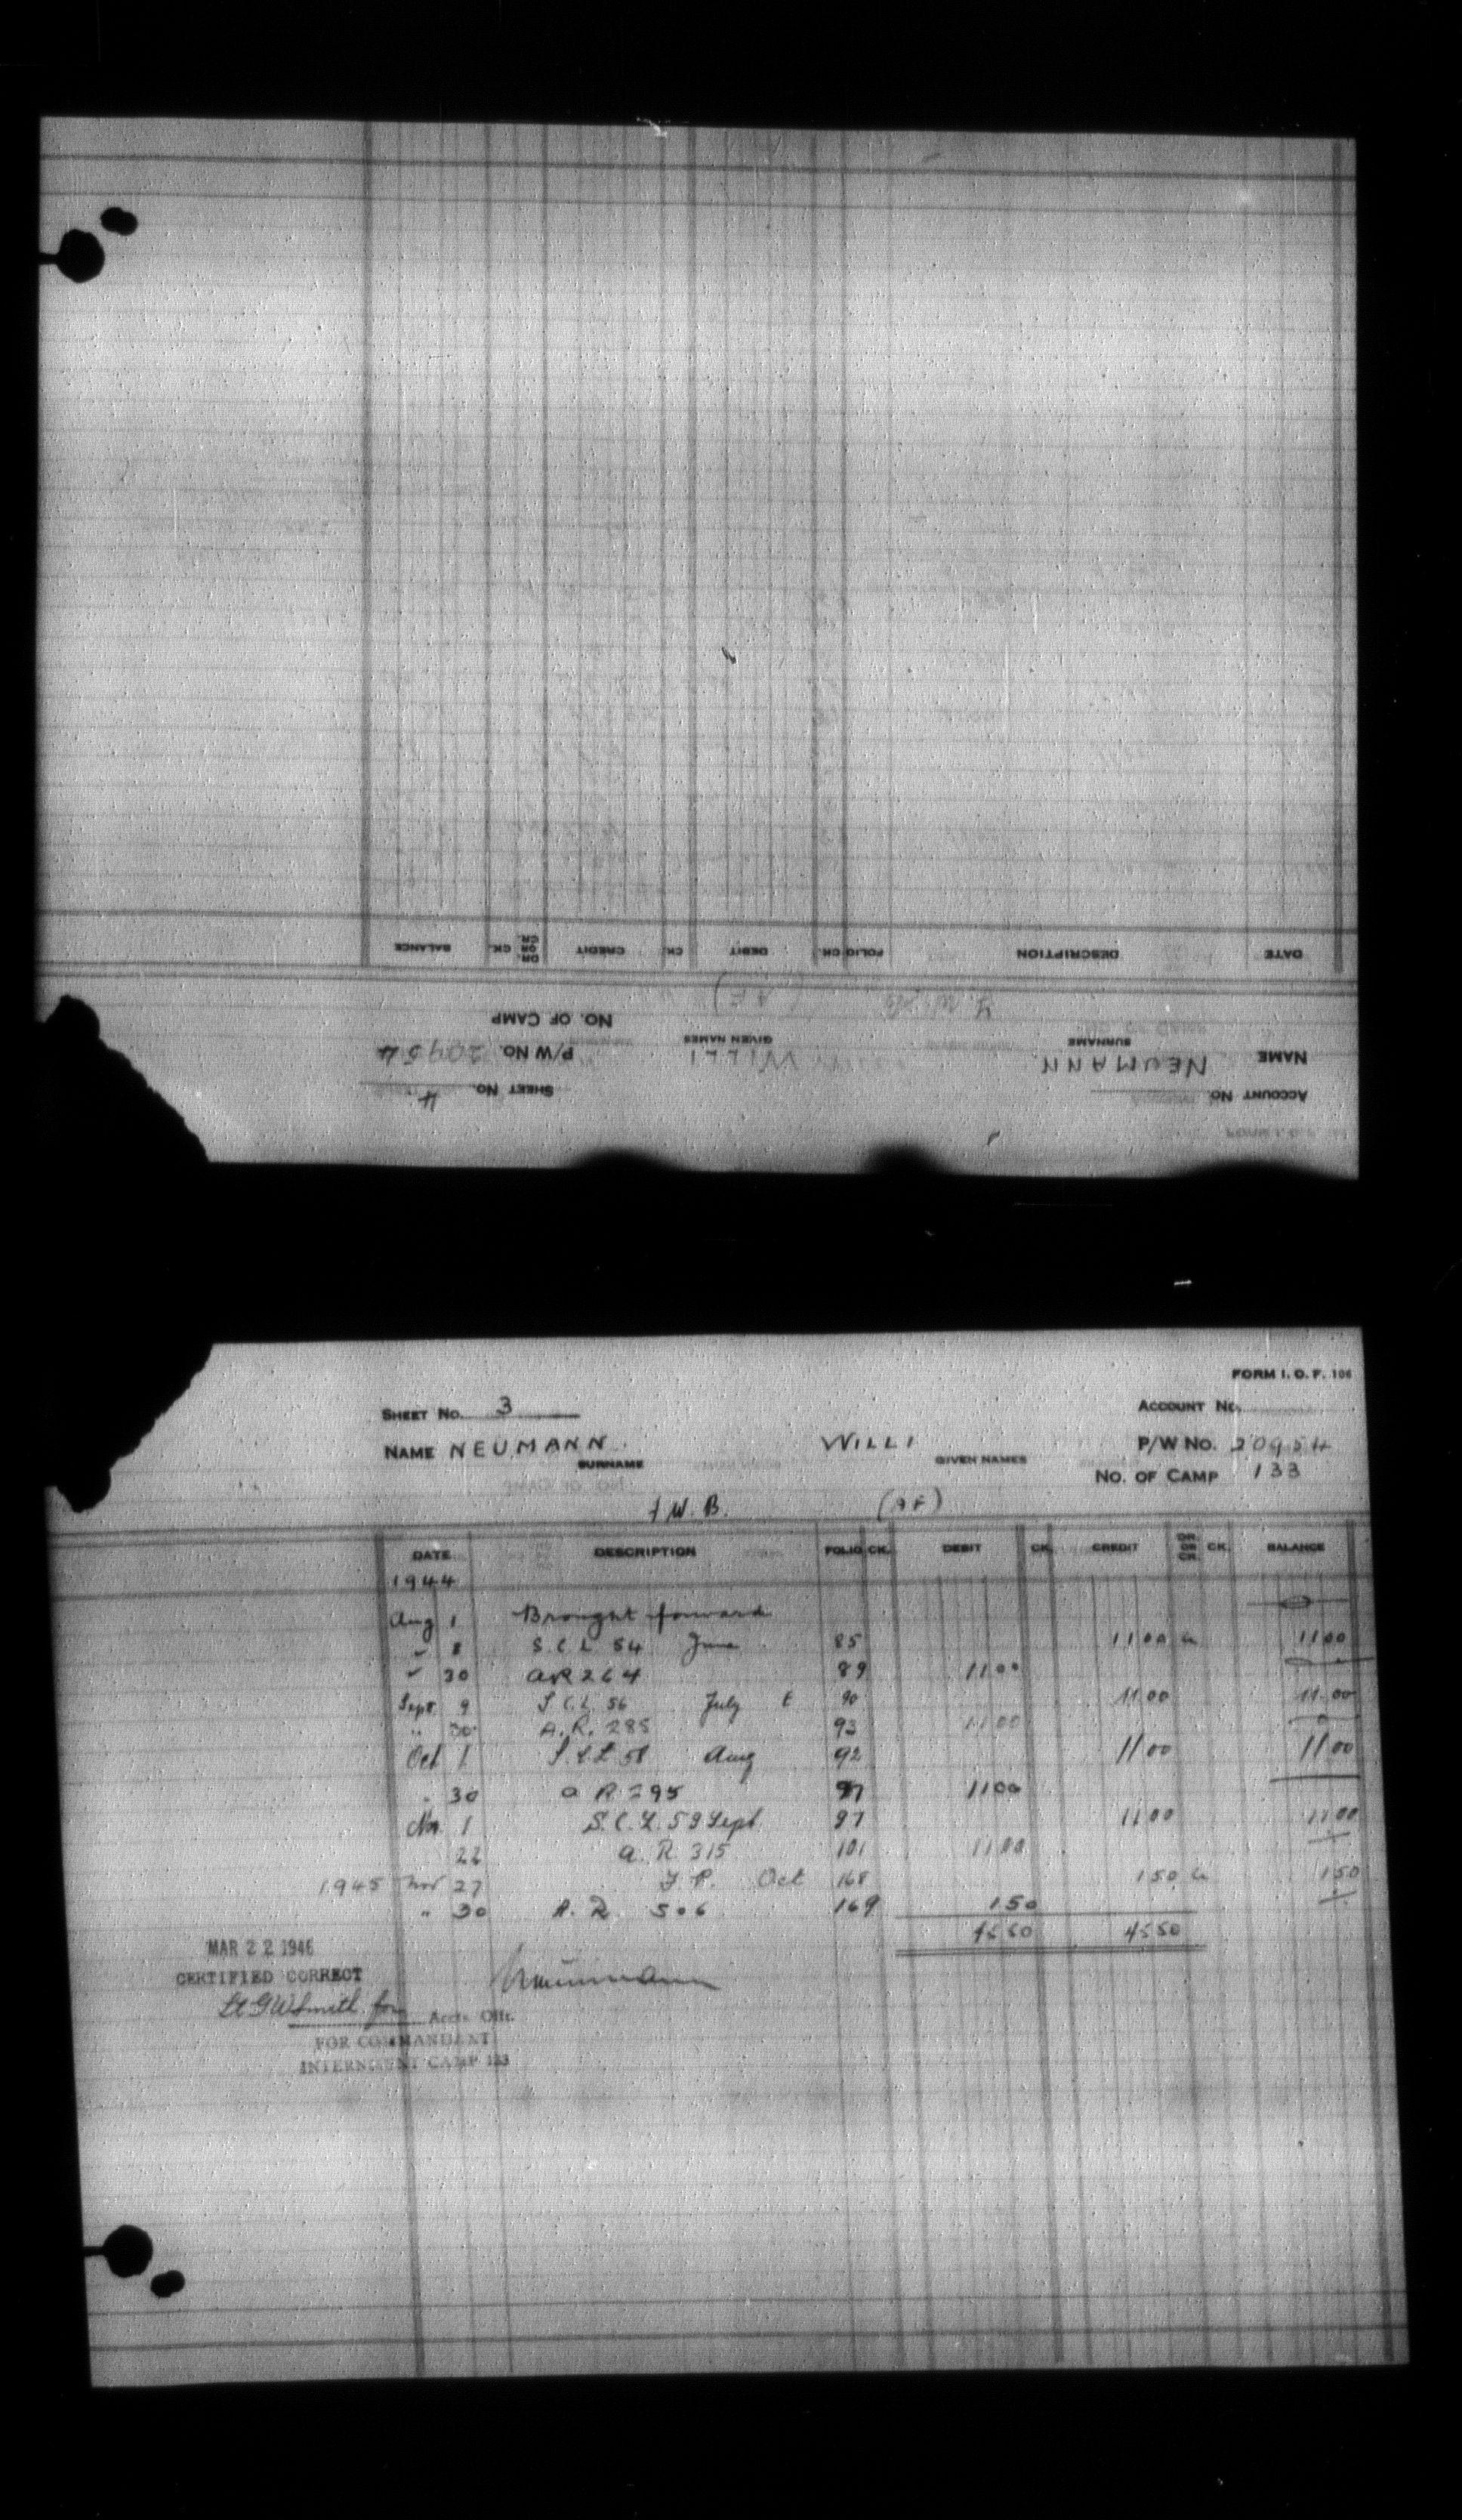 ACCOUNT NO.
SHEET NO. 4
NAME NEUMANN WILLI P/W NO. 20954
SURNAME GIVEN NAMES
NO. OF CAMP
(AF)
DATE DESCRIPTION FOLIO CK. DEBIT CK. CREDIT DR. OR CR. CK. BALANCE
FORM I. O. F. 106
SHEET NO. 3 ACCOUNT NO.
NAME NEUMANN WILLI P/W NO. 20954
SURNAME GIVEN NAMES
NO. OF CAMP 133
W. B. (AF)
DATE DESCRIPTION FOLIO CK. DEBIT CK. CREDIT DR. OR CR. CK. BALANCE
1944
Aug 1 Brought forward
" 8 S.C.L 54 June 85 11 00 11 00
" 30 AR 264 89 11 00
Sept 9 S.C.L. 56 July 90 11 00 11 00
" 30 A.R. 285 93 11 00
Oct 1 S.C.L 58 Aug 92 11 00 11 00
" 30 a R 295 97 11 00
Nov 1 S.C.L. 59 Sept 97 11 00 11 00
22 a. R. 315 101 11 00
1945 Nov 27 Oct 168 1 50 1 50
" 30 A. R. 506 169 1 50
45 50 45 50
MAR 22 1946
CERTIFIED CORRECT
Neumann
Lt GW Smith for Accts Offr.
FOR COMMANDANT
INTERNMENT CAMP 133